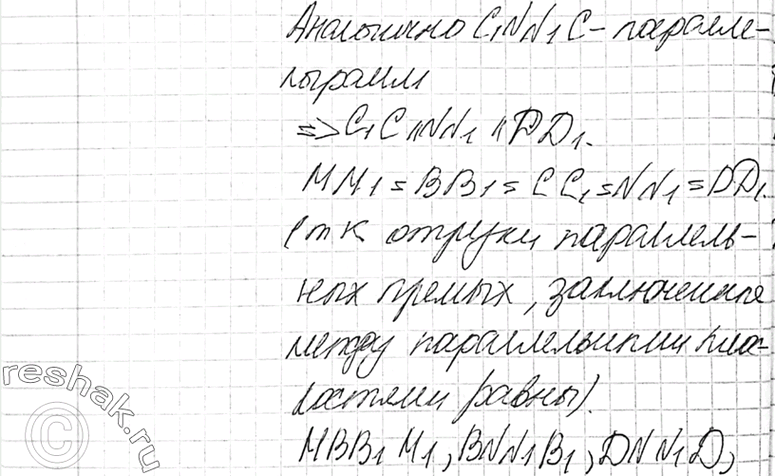 Аналогично C₁NN₁C - паралле-
лограмм
=> C₁C || NN₁ || DD₁.
MM₁ = BB₁ = CC₁ = NN₁ = DD₁.
(т к отрезки параллель-
ных прямых, заключенные
между параллельными плос-
костями равны).
MBB₁M₁, BNN₁B₁, DNN₁D,
reshak.ru